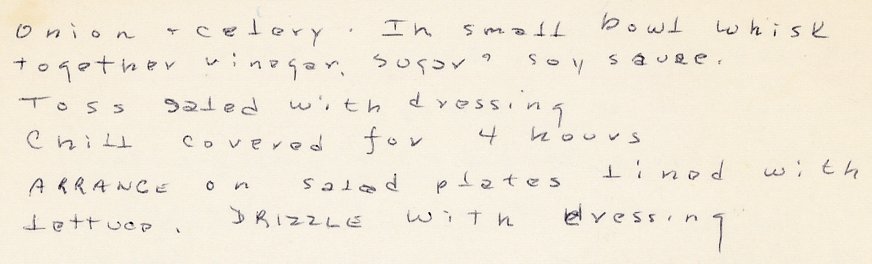 Onion + celery. In small bowl whisk
together vinegar, sugar, soy sauce.
Toss salad with dressing
Chill covered for 4 hours
ARRANGE on salad plates lined with
lettuce. DRIZZLE with dressing